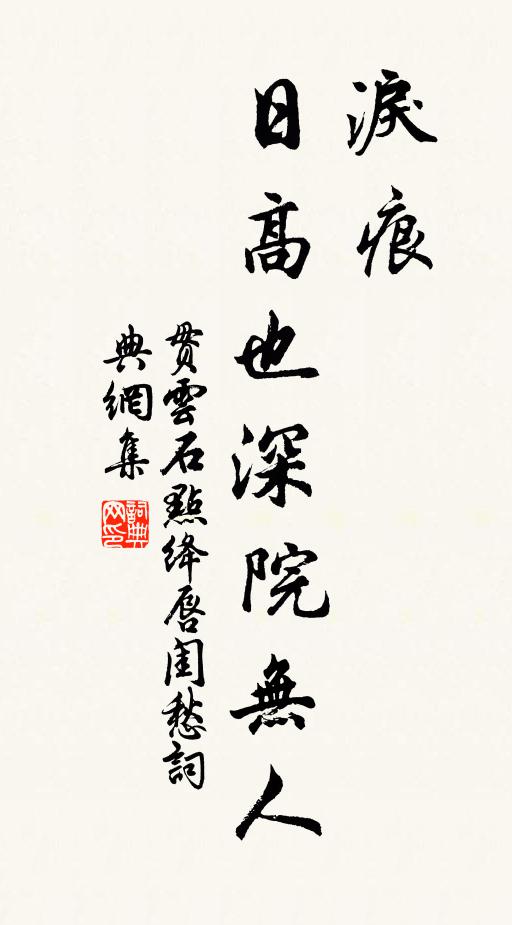 淚痕
日高也深院無人
貫雲石點絳唇閨愁詞
典網集
詞典
网印